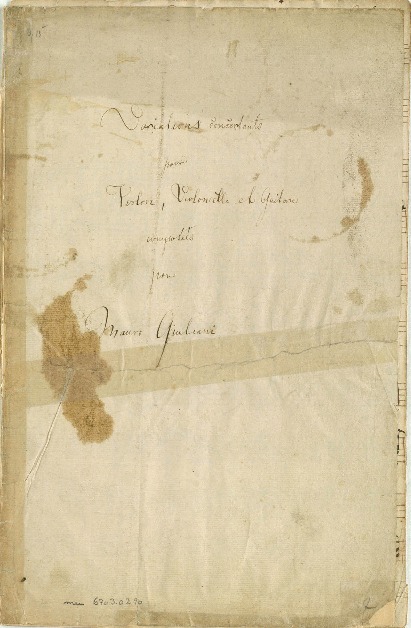 Variations concertants
pour
Violon, Violoncelle et Guitare
composées
par
Mauro Giuliani
6703.0290